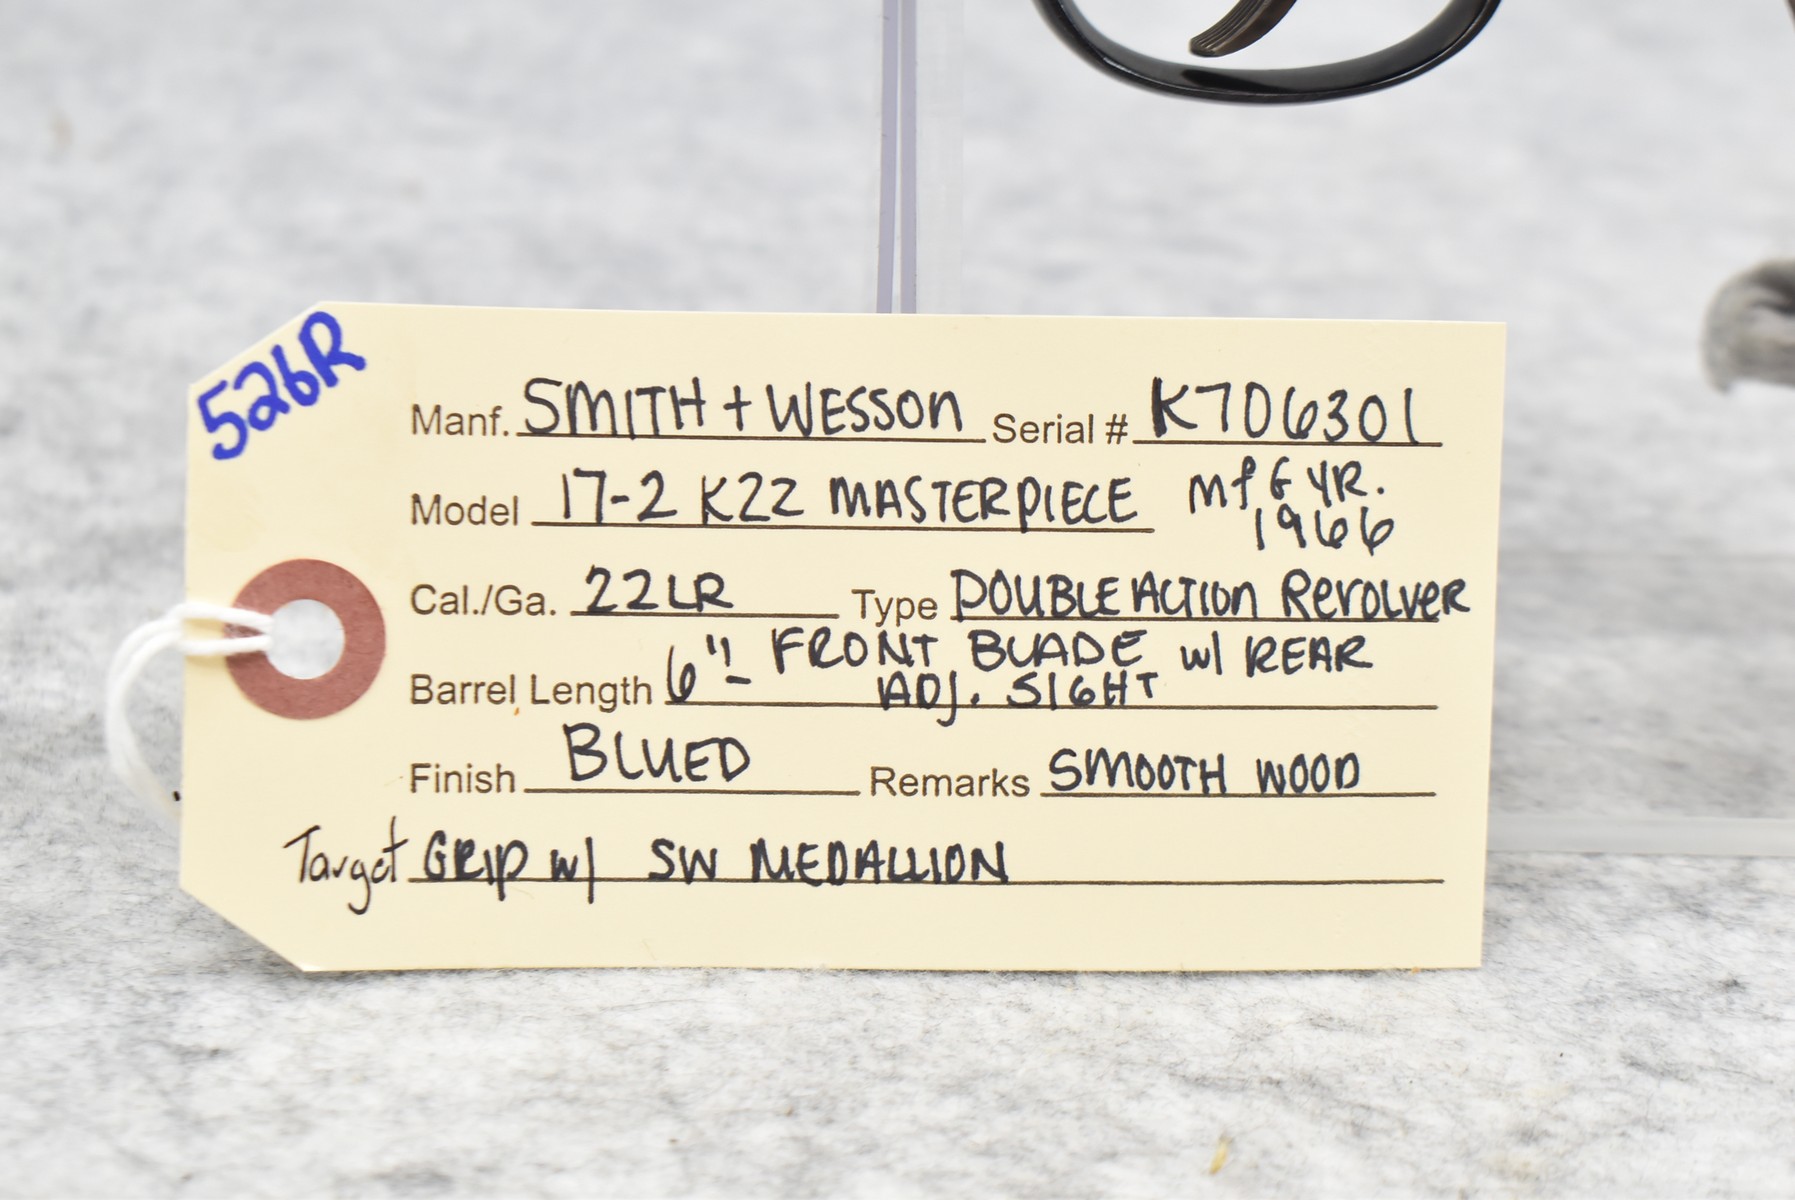 526R
Manf. SMITH + WESSON Serial # K706301
Model 17-2 K22 MASTERPIECE MfG YR.
1966
Cal./Ga. 22LR Type DOUBLE ACTION REVOLVER
Barrel Length 6"- FRONT BLADE w/ REAR
ADJ. SIGHT
Finish BLUED Remarks SMOOTH WOOD
Target GRIP w/ SW MEDALLION